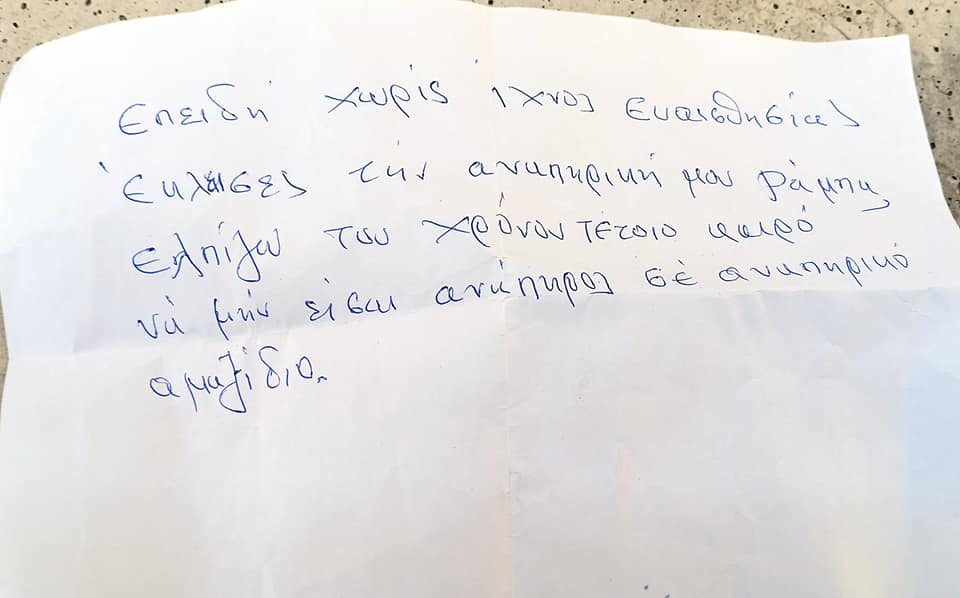 Επειδή χωρίς ίχνος ευαισθησίας
έκλεισες τήν αναπηρική μου ράμπα,
ελπίζω του χρόνου τέτοιο καιρό
νά μήν είσαι ανάπηρος σέ αναπηρικό
αμαξίδιο.